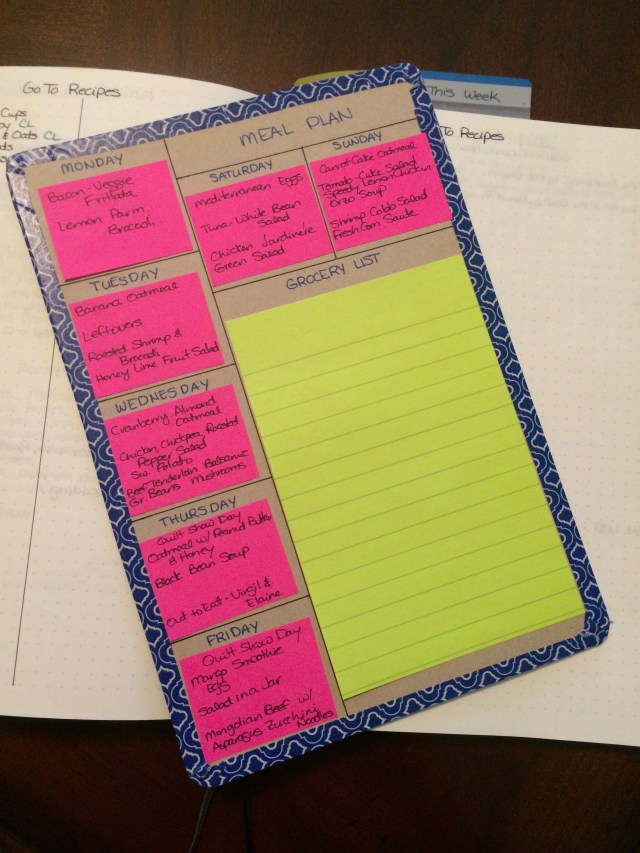 Go To Recipes
Cups
CL
& Oats CL
This Week
To Recipes
MEAL PLAN
MONDAY
Bacon-Veggie
Frittata
Lemon Parm.
Brocoli
TUESDAY
Banana Oatmeal
Leftovers
Roasted Shrimp &
Brocoli
Honey Lime Fruit Salad
WEDNESDAY
Cranberry Almond
Oatmeal
Chicken, Chickpea, Roasted
Pepper Salad
Sw. Potato
Beef Tenderloin Balsamic
Gr. Beans Mushrooms
THURSDAY
Quilt Show Day
Oatmeal w/ Peanut Butter
& Honey
Black Bean Soup
Out to Eat - Virgil &
Elaine
FRIDAY
Quilt Show Day
Mango Smoothie
Egg
Salad in a Jar
Mongolian Beef w/
Asparagus Zucchini
Noodles
SATURDAY
Mediterranean Eggs
Tuna-White Bean
Salad
Chicken Jardiniere
Green Salad
SUNDAY
Carrot Cake Oatmeal
Tomato-Cuke Salad
Speedy Lemon Chicken
Orzo Soup
Shrimp Cobb Salad
Fresh Corn Saute
GROCERY LIST